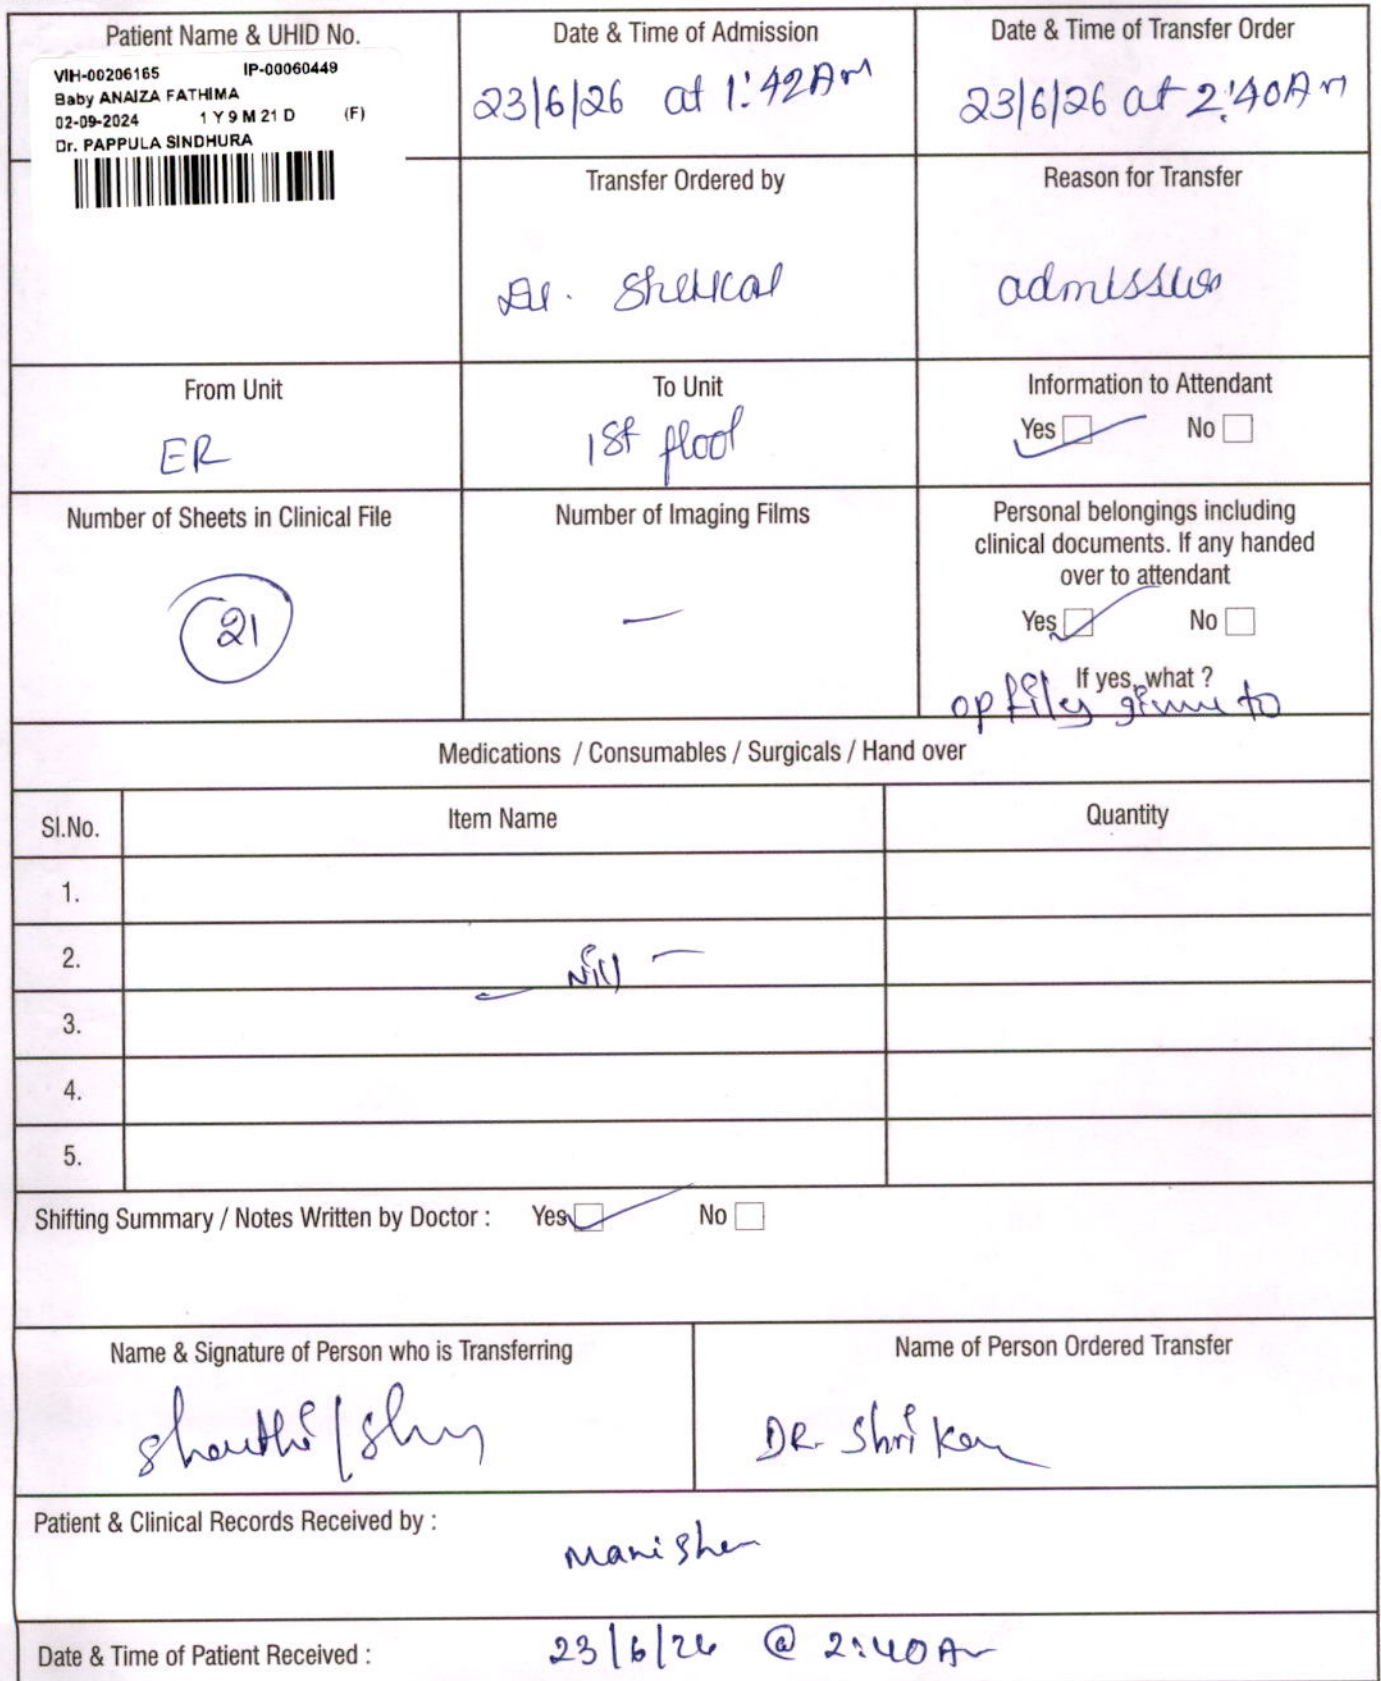 Patient Name & UHID No.
VIH-00206165 IP-00060449
Baby ANAIZA FATHIMA
02-09-2024 1 Y 9 M 21 D (F)
Dr. PAPPULA SINDHURA
Date & Time of Admission
23/6/26 at 1:42Am
Date & Time of Transfer Order
23/6/26 at 2:40Am
Transfer Ordered by
Dr.
Reason for Transfer
admission
From Unit
ER
To Unit
1st floor
Information to Attendant
Yes No
Number of Sheets in Clinical File
21
Number of Imaging Films
—
Personal belongings including
clinical documents. If any handed
over to attendant
Yes No
If yes, what ?
op files given to
Medications / Consumables / Surgicals / Hand over
Sl.No. Item Name Quantity
1.
2.
— Nill —
3.
4.
5.
Shifting Summary / Notes Written by Doctor : Yes No
Name & Signature of Person who is Transferring
Shanthi /
Name of Person Ordered Transfer
DR. Shri
Patient & Clinical Records Received by :
Manisha
Date & Time of Patient Received : 23/6/26 @ 2:40Am